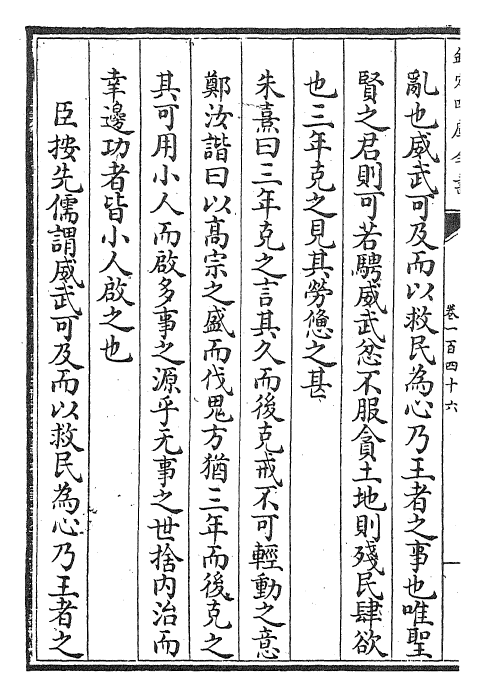 欽定四庫全書
卷一百四十六
亂也威武可及而以救民為心乃王者之事也唯聖
賢之君則可若騁威武忿不服貪土地則殘民肆欲
也三年克之見其勞憊之甚
朱熹曰三年克之言其久而後克戒不可輕動之意
鄭汝諧曰以高宗之盛而伐鬼方猶三年而後克之
其可用小人而啟多事之源乎无事之世捨内治而
幸邊功者皆小人啟之也
臣按先儒謂威武可及而以救民為心乃王者之